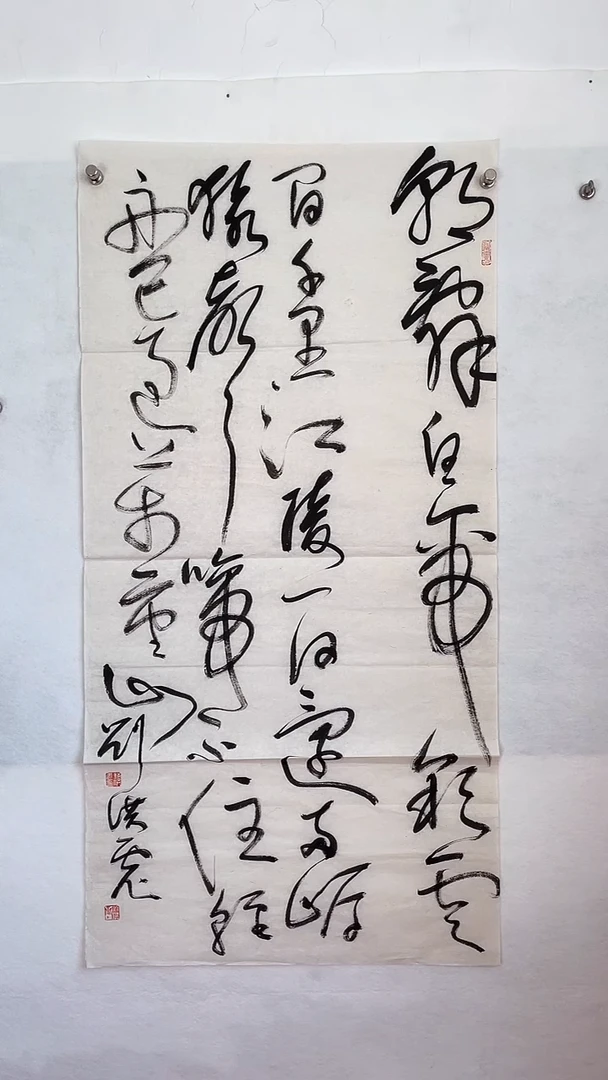 朝辭白帝彩雲
間千里江陵一日還兩岸
猿聲啼不住輕
舟已過萬重山劉洪彪